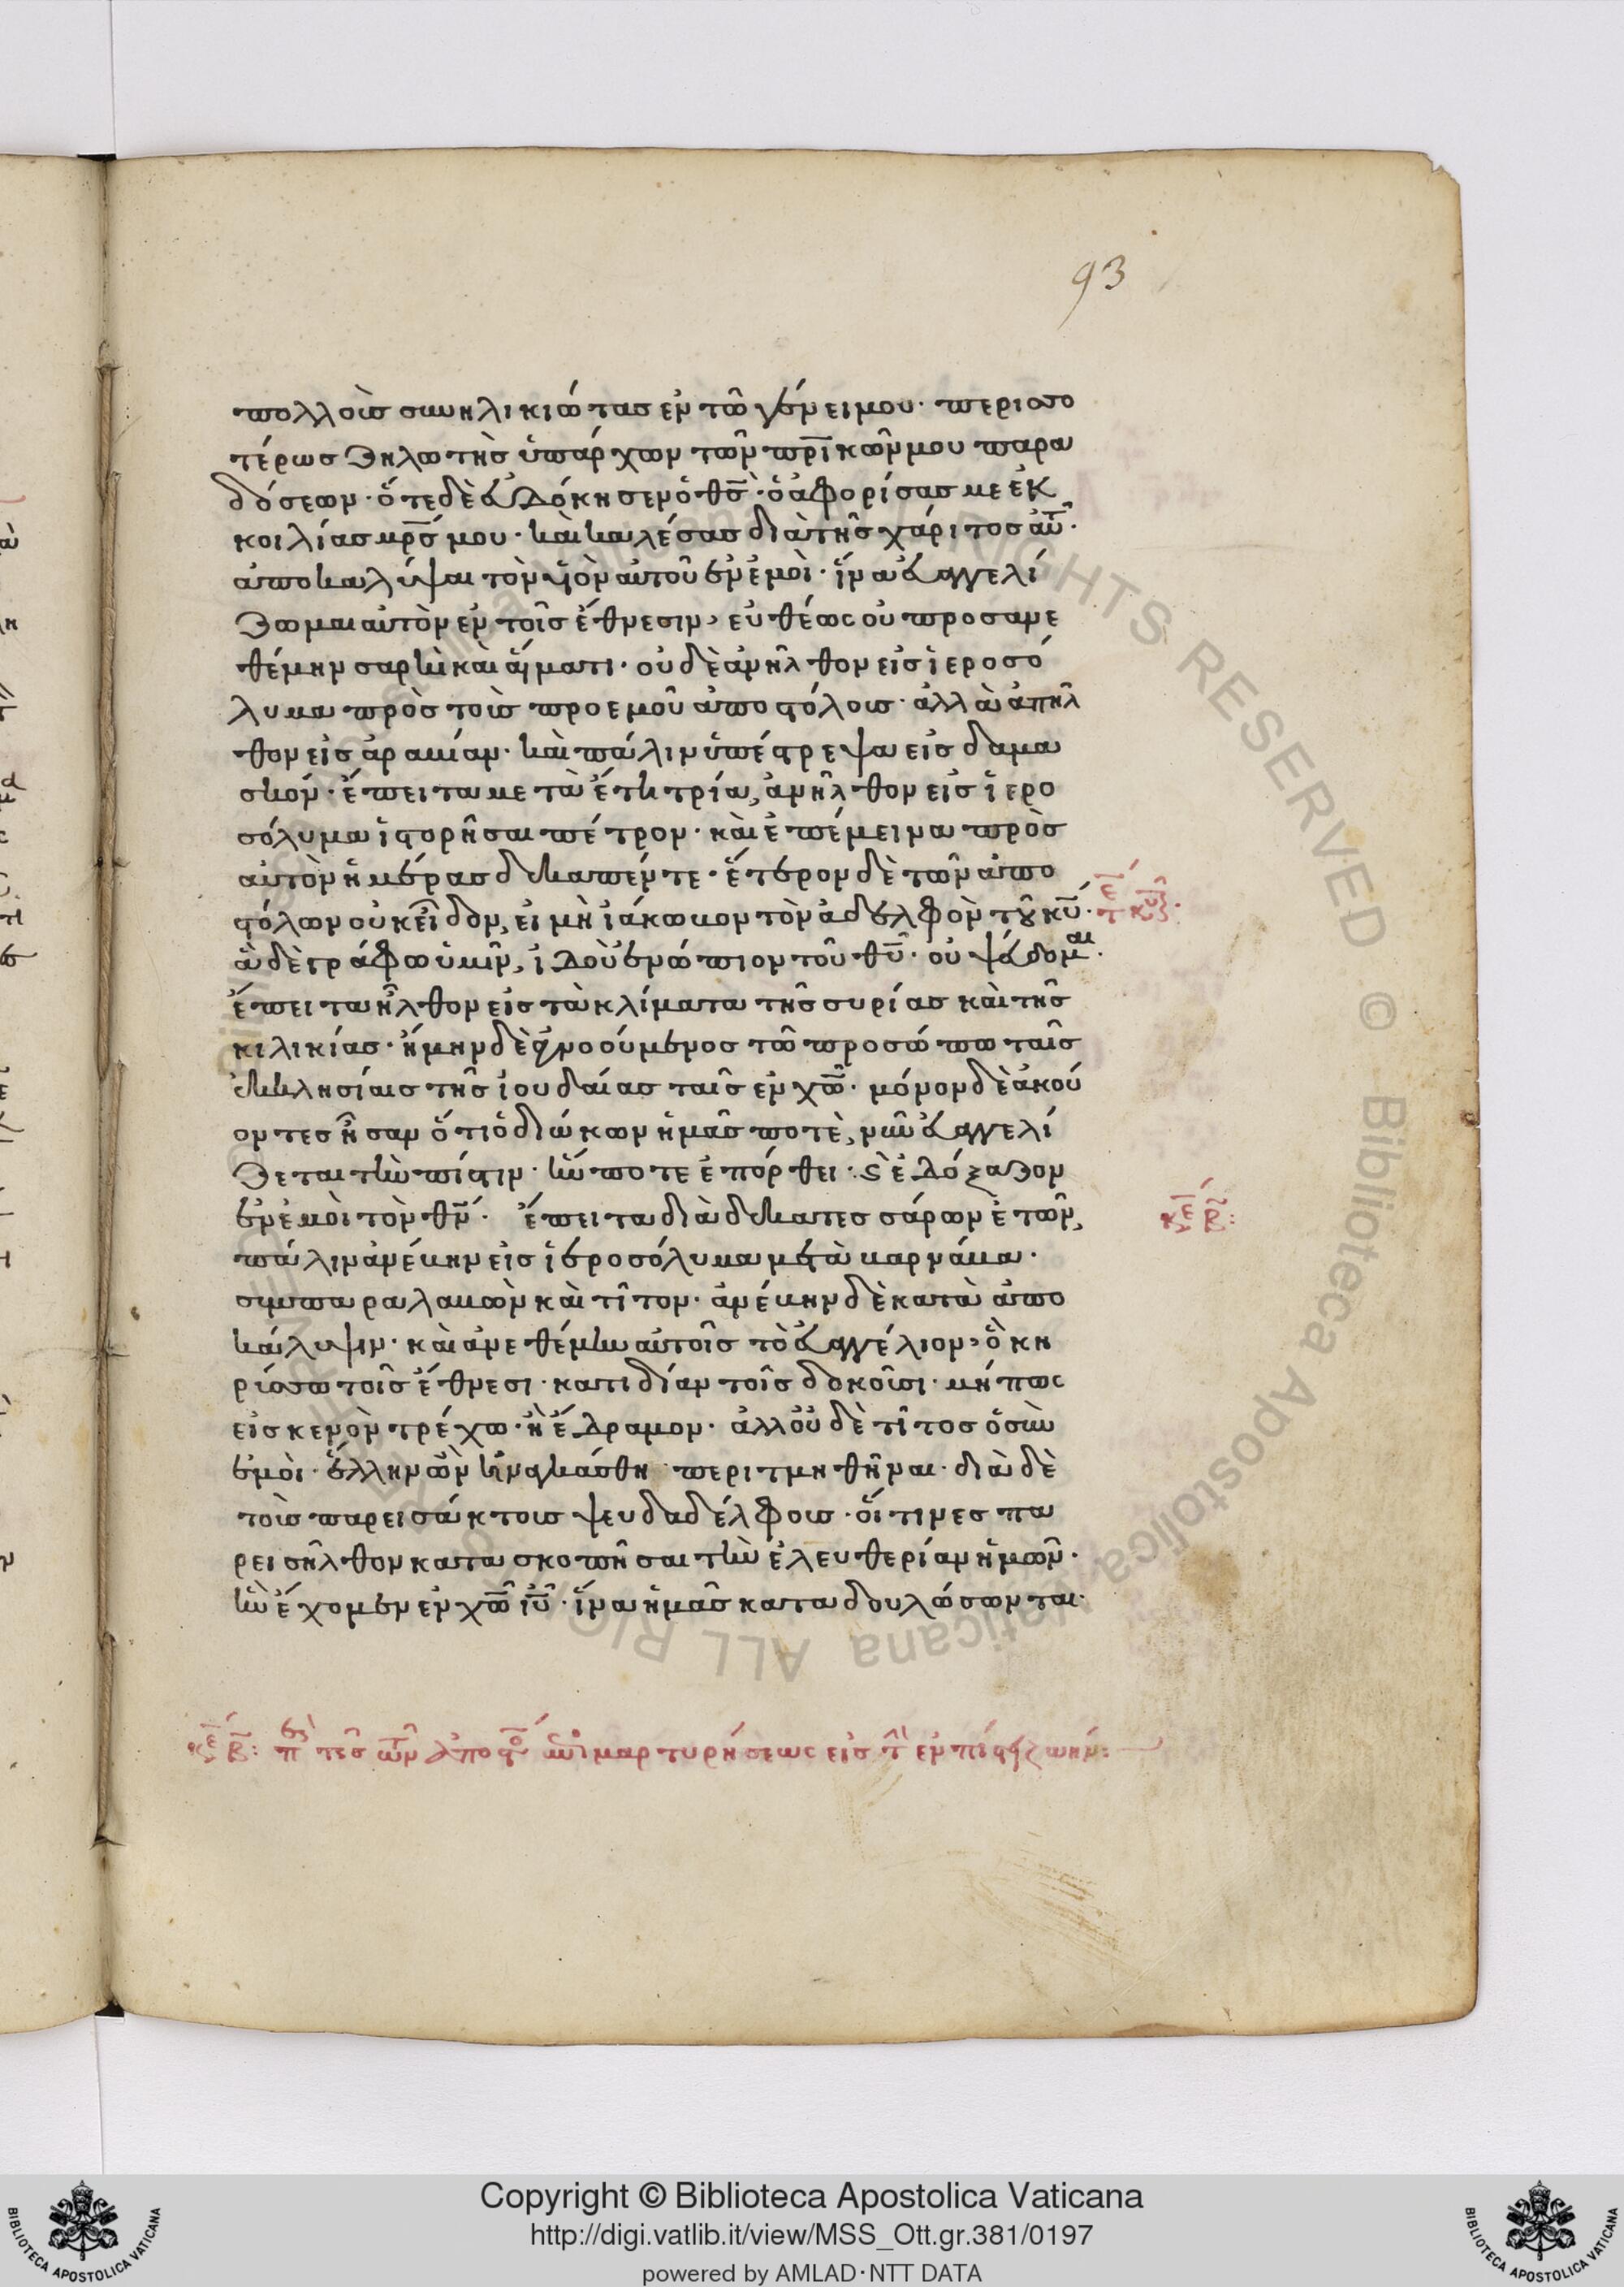 93
πολλοὺς συνηλικιώτας ἐν τῶ γένει μου· περισσο
τέρως ζηλωτὴς ὑπάρχων τῶν πρ̅ικῶν μου παρα
δόσεων· ὅτε δὲ εὐδόκησεν ὁ θς̅· ὁ ἀφορίσας με ἐκ
κοιλίας μρ̅ς μου· καὶ καλέσας διὰ τῆς χάριτος αὐτ̅·
ἀποκαλύψαι τὸν υἱὸν αὐτοῦ ἐν ἐμοὶ· ἵνα εὐαγγελί
ζωμαι αὐτὸν ἐν τοῖς ἔθνεσιν, εὐθέως οὐ προσανε
θέμην σαρκὶ καὶ αἵματι· οὐδὲ ἀνῆλθον εἰς ἱεροσό
λυμα πρὸς τοὺς πρὸ ἐμοῦ ἀποστόλους· ἀλλὰ ἀπῆλ
θον εἰς ἀραβίαν· καὶ πάλιν ὑπέστρεψα εἰς δαμα
σκόν· ἔπειτα μετὰ ἔτη τρία, ἀνῆλθον εἰς ἱερο
σόλυμα ἱστορῆσαι πέτρον· καὶ ἐπέμεινα πρὸς
αὐτὸν ἡμέρας δεκαπέντε· ἕτερον δὲ τῶν ἀπο
στόλων οὐκ εἶδον, εἰ μὴ ἰάκωβον τὸν ἀδελφὸν τοῦ κυ̅·
ἃ δὲ γράφω ὑμῖν, ἰδοὺ ἐνώπιον τοῦ θυ̅· οὐ ψεύδομαι·
ἔπειτα ἦλθον εἰς τὰ κλίματα τῆς συρίας καὶ τῆς
κιλικίας· ἤμην δὲ ἀγνοούμενος τῶ προσώπω ταῖς
ἐκκλησίαις τῆς ἰουδαίας ταῖς ἐν χω̅· μόνον δὲ ἀκού
οντες ἦσαν ὅτι ὁ διώκων ἡμᾶς ποτὲ, νῦν εὐαγγελί
ζεται τὴν πίστιν· ἥν ποτε ἐπόρθει· ϛ ἐδόξαζον
ἐν ἐμοὶ τὸν θν̅· ἔπειτα διὰ δεκατεσσάρων ἐτῶν,
πάλιν ἀνέβην εἰς ἱεροσόλυμα μετὰ βαρνάβα·
συμπαραλαβὼν καὶ τῖτον· ἀνέβην δὲ κατὰ ἀπο
κάλυψιν· καὶ ἀνεθέμην αὐτοῖς τὸ εὐαγγέλιον, ὃ κη
ρύσσω τοῖς ἔθνεσι· κατιδίαν τοῖς δοκοῦσι· μήπως
εἰς κενὸν τρέχω· ἢ ἔδραμον· ἀλλοὐδὲ τῖτος ὁ σὺν
ἐμοὶ· ἕλλην ὢν ἠναγκάσθη περιτμηθῆναι· διὰ δὲ
τοὺς παρεισάκτους ψευδαδέλφους· οἵτινες πα
ρεισῆλθον κατασκοπῆσαι τὴν ἐλευθερίαν ἡμῶν·
ἣν ἔχομεν ἐν χω̅ ιυ̅· ἵνα ἡμᾶς καταδουλώσωνται·
Copyright © Biblioteca Apostolica Vaticana
http://digi.vatlib.it/view/MSS_Ott.gr.381/0197
powered by AMLAD·NTT DATA